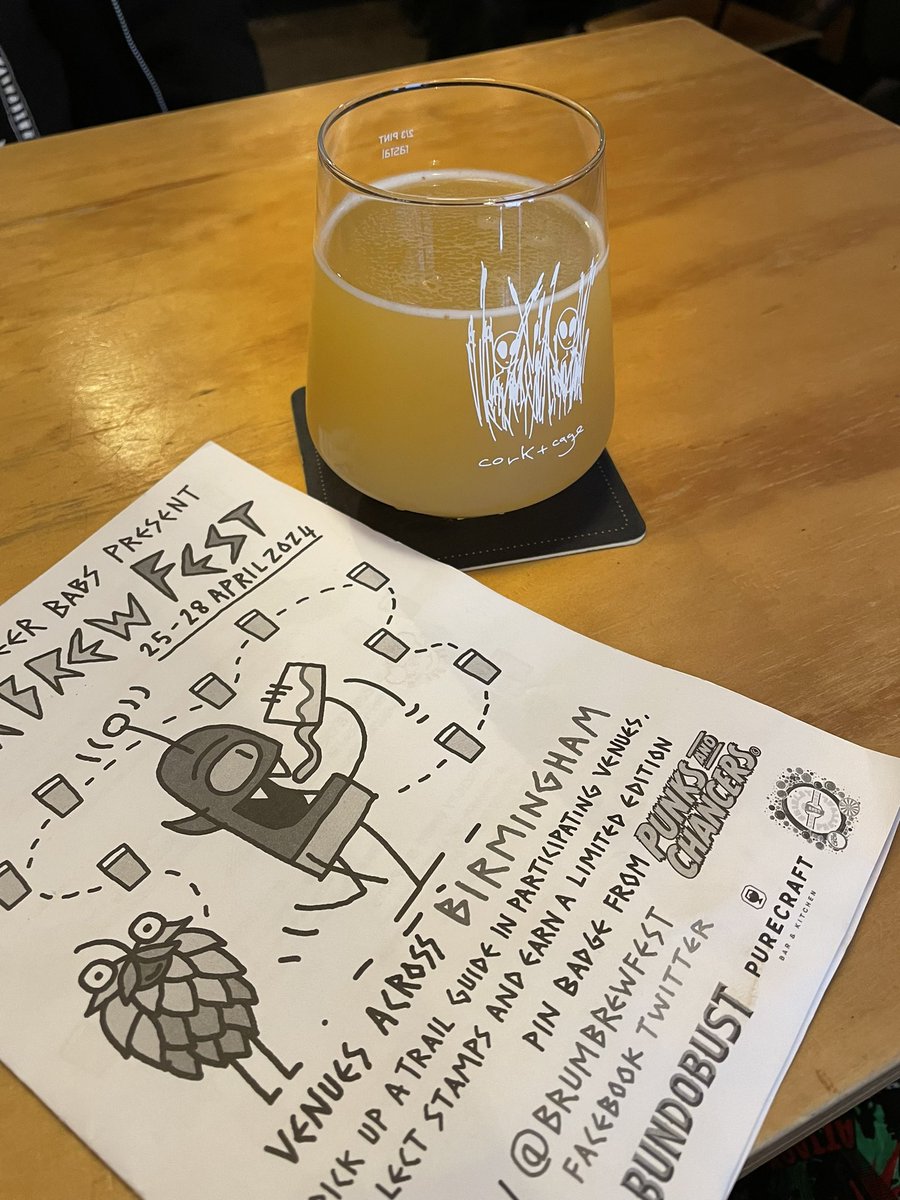 2/3 PINT
rastal
cork + cage
BABS PRESENT
BREW FEST
25-28 APRIL 2024
VENUES ACROSS BIRMINGHAM
PICK UP A TRAIL GUIDE IN PARTICIPATING VENUES.
STAMPS AND EARN A LIMITED EDITION
PIN BADGE FROM PUNKS AND CHANCERS®
@BRUMBREWFEST
FACEBOOK TWITTER
PURECRAFT
BAR & KITCHEN
BUNDOBUST